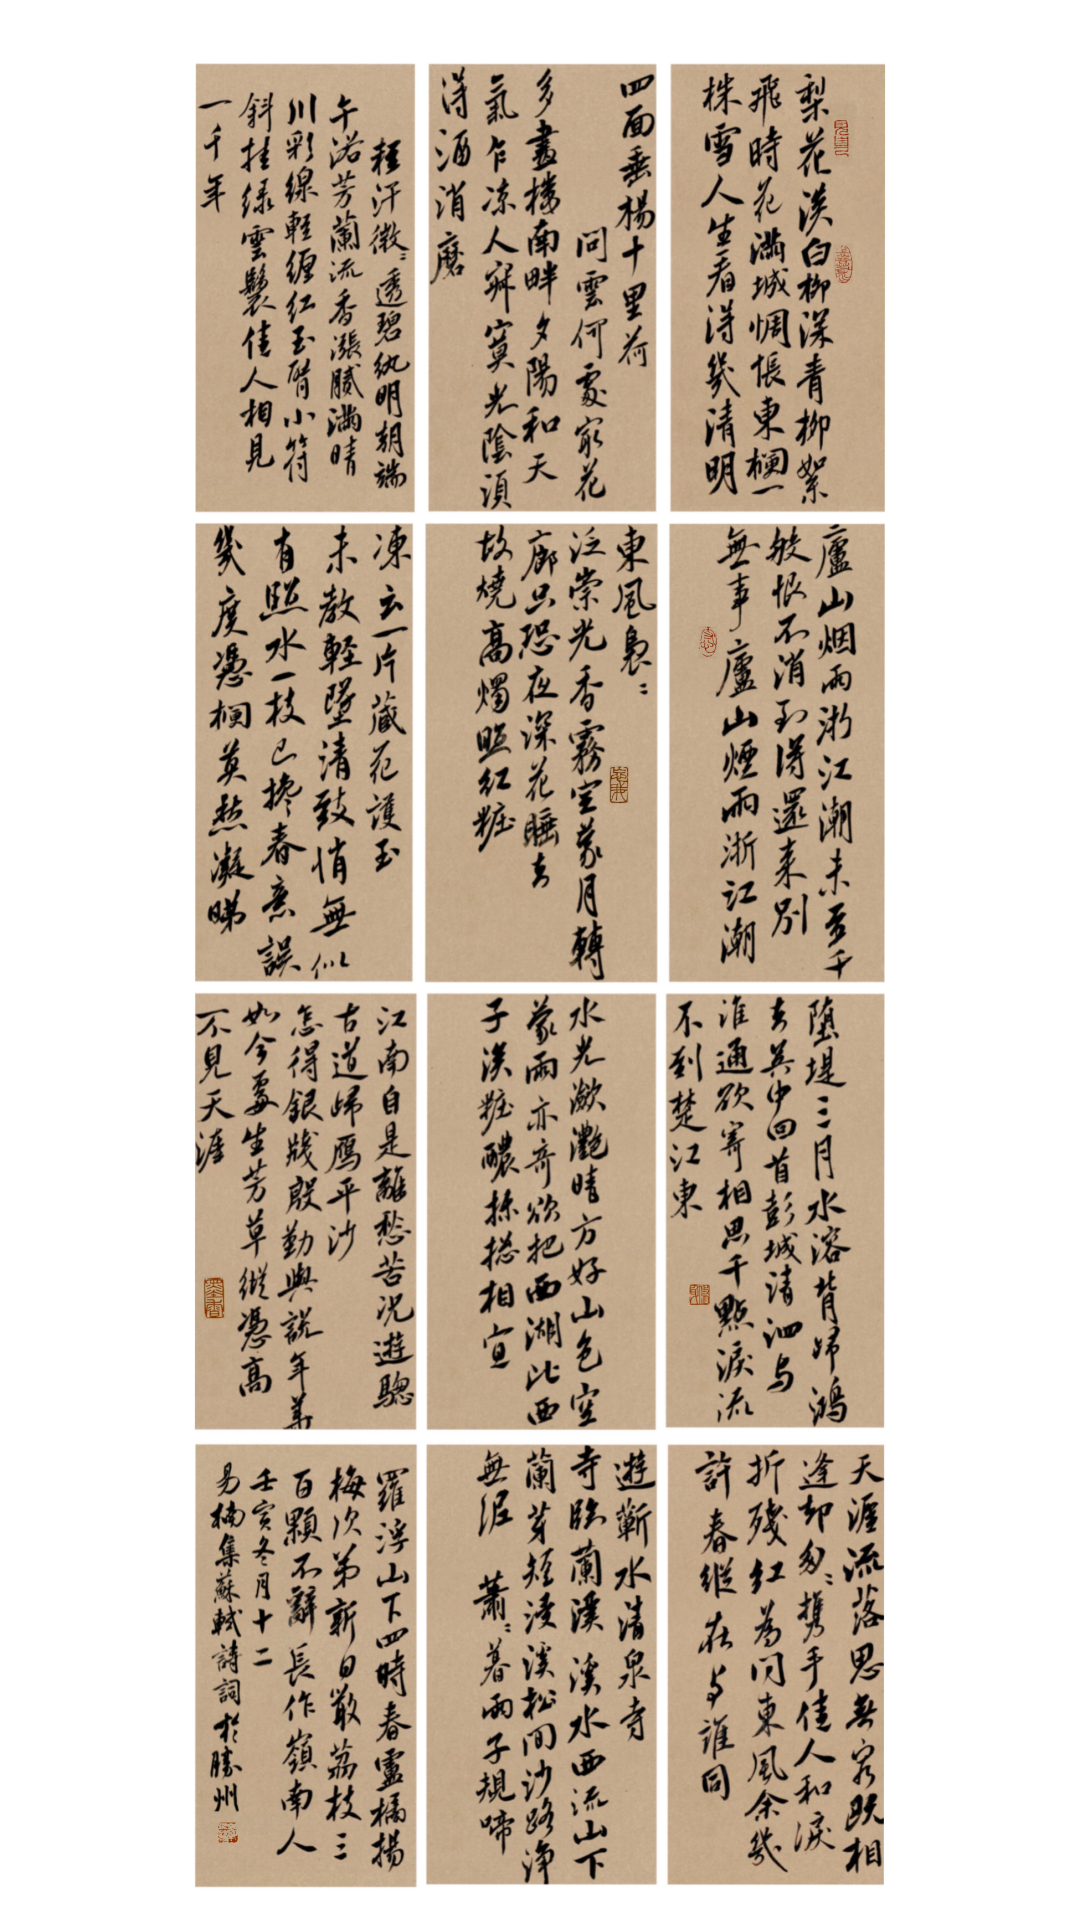 梨花淡白柳深青柳絮
飛時花滿城惆悵東欄一
株雪人生看得幾清明
四面垂楊十里荷
問雲何處最花
多畫樓南畔夕陽和天
氣乍凉人寂寞光陰須
得酒消磨
輕汗微〻透碧紈明朝端
午浴芳蘭流香漲膩滿晴
川彩線輕纏紅玉臂小符
斜挂綠雲鬟佳人相見
一千年
廬山烟雨浙江潮未至千
般恨不消到得還來別
無事廬山煙雨浙江潮
東風裊〻
泛崇光香霧空蒙月轉
廊只恐夜深花睡去
故燒高燭照紅粧
凍雲一片藏花護玉
未教輕墜清致悄無似
有照水一枝已攙春意誤
幾度憑欄莫愁凝睇
隋堤三月水溶背歸鴻
去吳中回首彭城清泗与
淮通欲寄相思千點淚流
不到楚江東
水光瀲灔晴方好山色空
蒙雨亦奇欲把西湖比西
子淡粧醲抹揔相宜
江南自是離愁苦況遊驄
古道歸鴈平沙
怎得銀牋殷勤與説年華
如今處生芳草縱憑高
不見天涯
天涯流落思無窮既相
逢却匆〻携手佳人和淚
折殘紅為问東風余幾
許春縱在与誰同
遊蘄水清泉寺
寺臨蘭溪溪水西流山下
蘭芽短浸溪松间沙路淨
無泥 蕭〻暮雨子規啼
羅浮山下四時春盧橘楊
梅次弟新日啖荔枝三
百顆不辭長作嶺南人
壬寅冬月十二
易楠集蘇軾詩詞於勝州